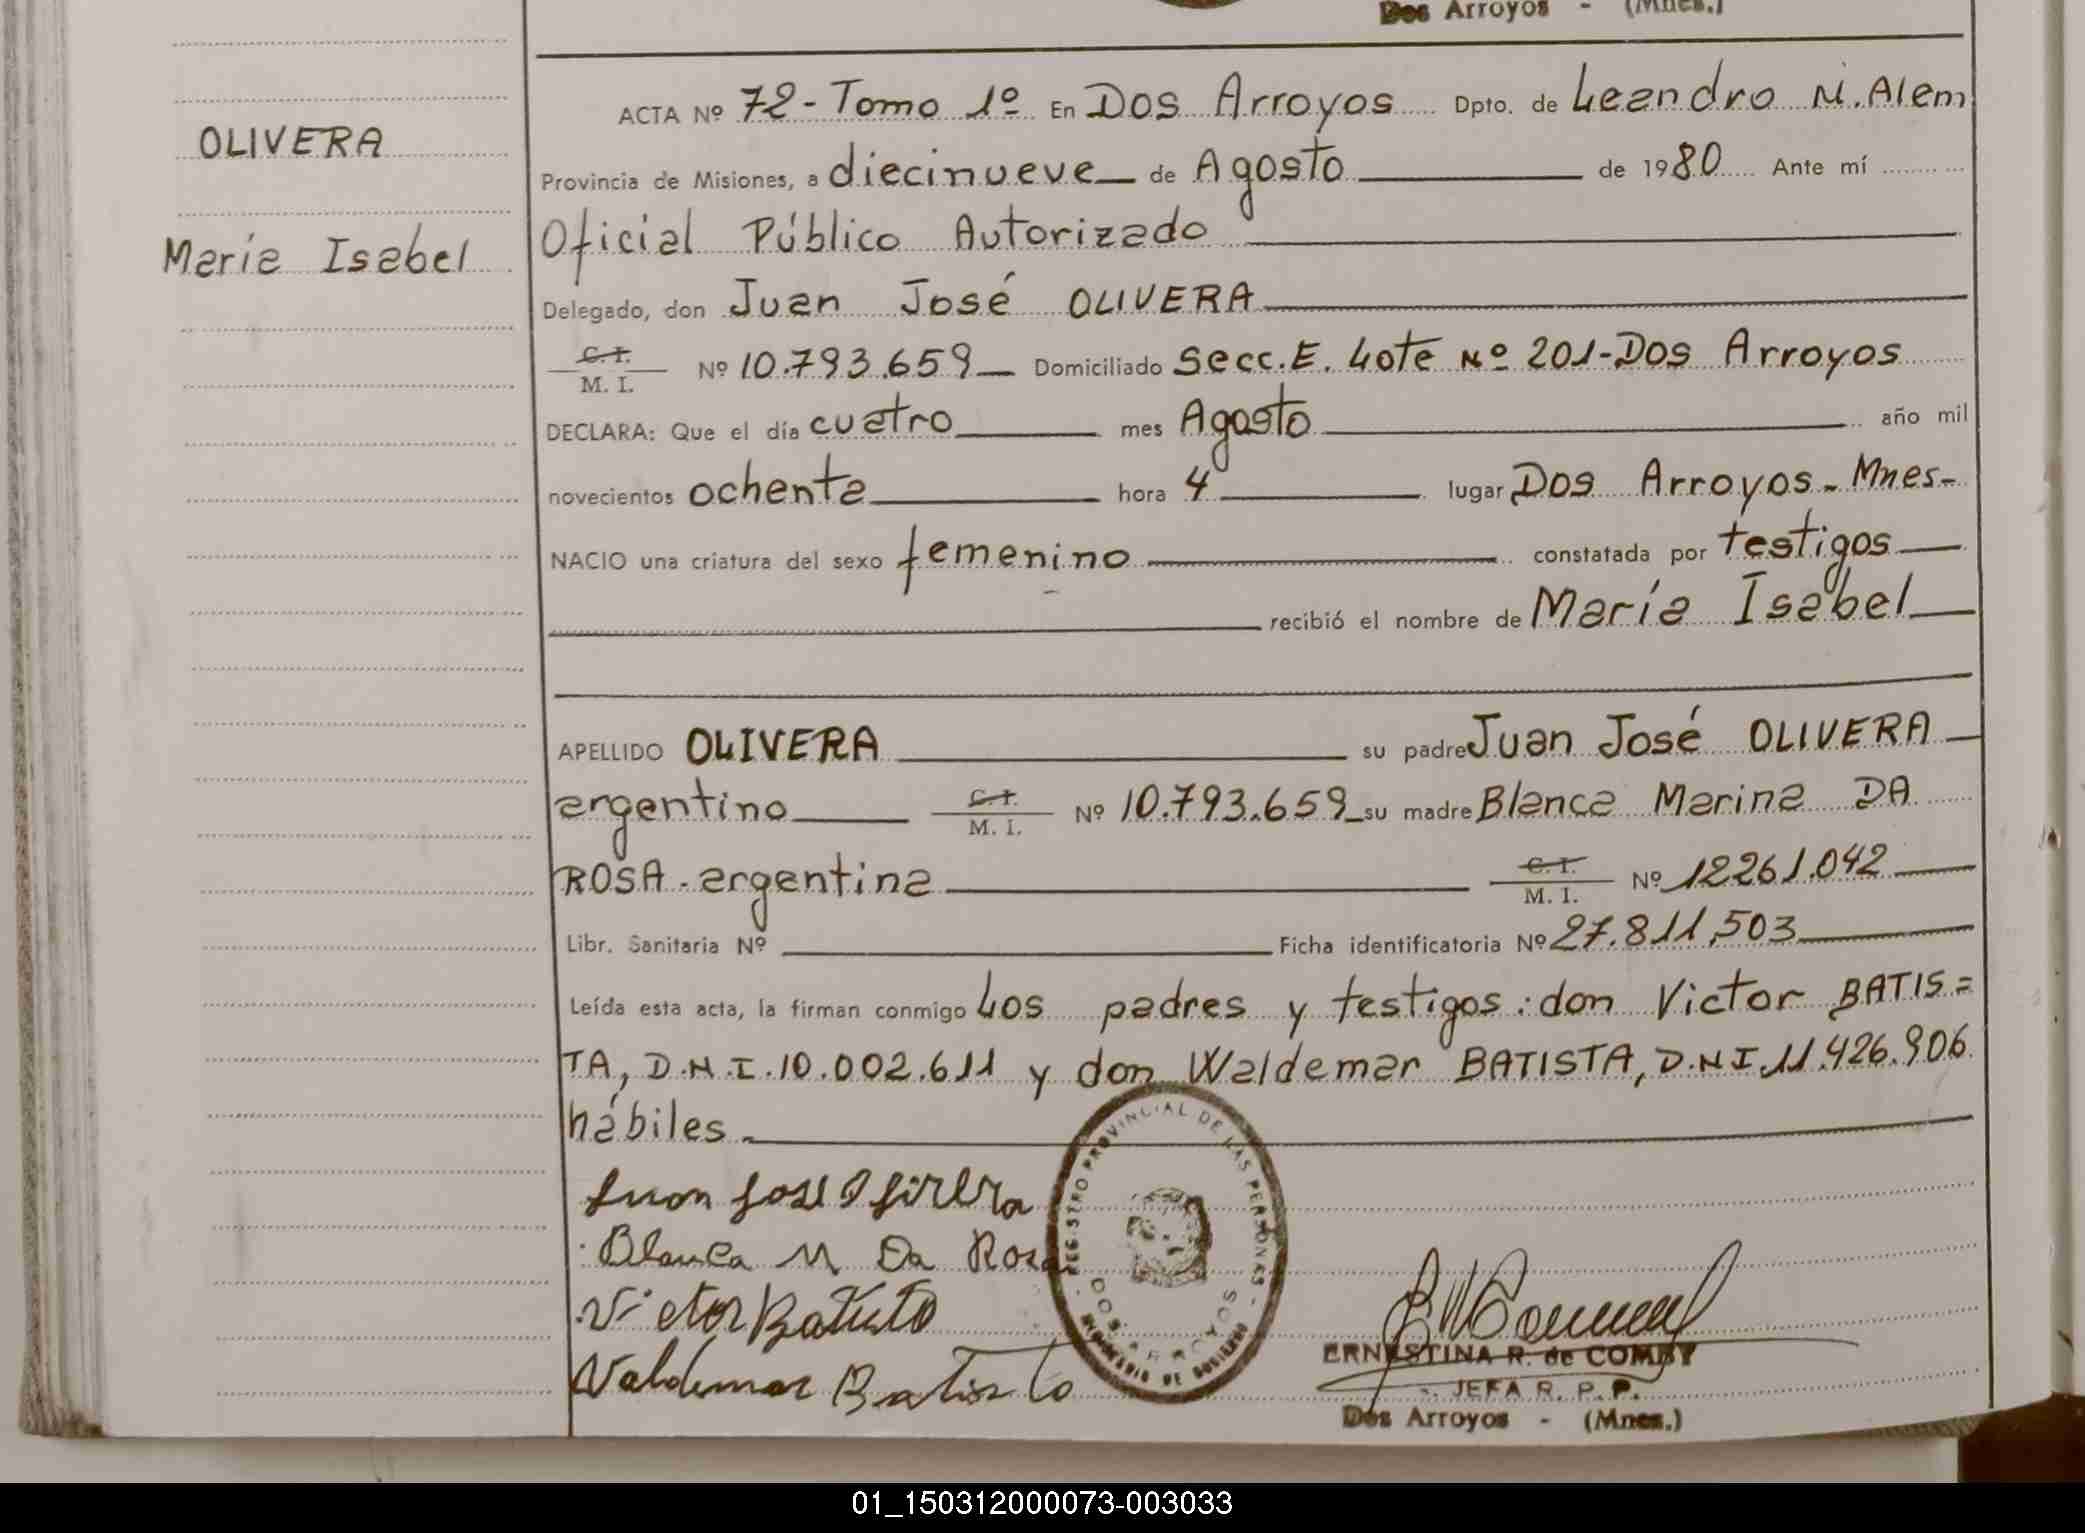 Dos Arroyos - (Mnes.)
OLIVERA
María Isabel
ACTA Nº 72 - Tomo 1º En Dos Arroyos Dpto. de Leandro N. Alem
Provincia de Misiones, a diecinueve de Agosto de 1980 Ante mí
Oficial Público Autorizado
Delegado, don Juan José OLIVERA
C.I.
M. I. Nº 10.793.659 Domiciliado Secc. E. Lote Nº 201 - Dos Arroyos
DECLARA: Que el día cuatro mes Agosto año mil
novecientos ochenta hora 4 lugar Dos Arroyos - Mnes-
NACIO una criatura del sexo femenino constatada por testigos
recibió el nombre de María Isabel
APELLIDO OLIVERA su padre Juan José OLIVERA
argentino C.I. M. I. Nº 10.793.659 su madre Blanca Marina DA
ROSA - argentina C.I. M. I. Nº 12261.042
Libr. Sanitaria Nº Ficha identificatoria Nº 27.811,503
Leída esta acta, la firman conmigo Los padres y testigos: don Victor BATIS=
TA, D.N.I. 10.002.611 y don Waldemar BATISTA, D.N.I. 11.426.906
hábiles.
Juan José Olivera
Blanca M Da Rosa
Victor Batisto
Valdemar Batisto
REGISTRO PROVINCIAL DE LAS PERSONAS
DOS ARROYOS
ERNESTINA R. de COMBY
JEFA R. P. P.
Dos Arroyos - (Mnes.)
01_150312000073-003033